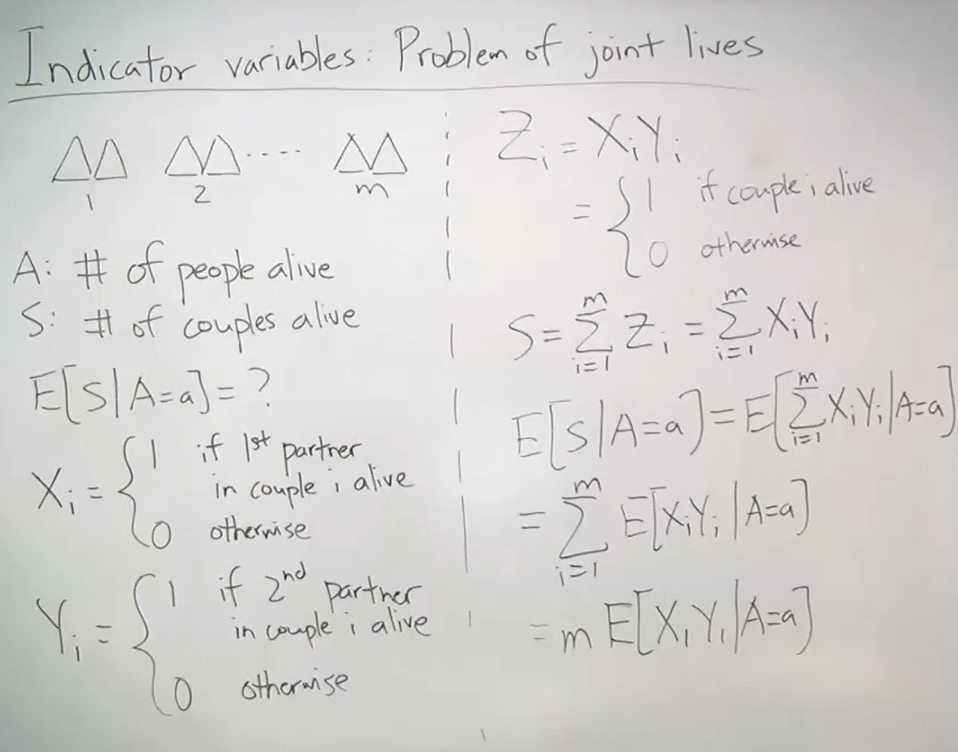 Indicator variables: Problem of joint lives
ΔΔ ΔΔ .... ΔΔ
1 2 m
A: # of people alive
S: # of couples alive
E[S|A=a]=?
X_i = { 1 if 1st partner
in couple i alive
0 otherwise
Y_i = { 1 if 2nd partner
in couple i alive
0 otherwise
Z_i = X_i Y_i
= { 1 if couple i alive
0 otherwise
S = \sum_{i=1}^{m} Z_i = \sum_{i=1}^{m} X_i Y_i
E[S|A=a] = E[\sum_{i=1}^{m} X_i Y_i | A=a]
= \sum_{i=1}^{m} E[X_i Y_i | A=a]
= m E[X_1 Y_1 | A=a]